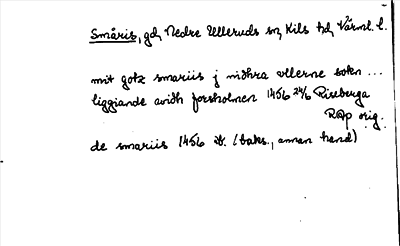 Småris, gd, Nedre Ulleruds sn, Kils hd, Värml. l.
mit gotz smariis j nidhra ullerne sokn ...
liggiande widh forsholmen 1456 24/6 Riseberga
RAp orig.
de smariis 1456 ib. (baks., annan hand)